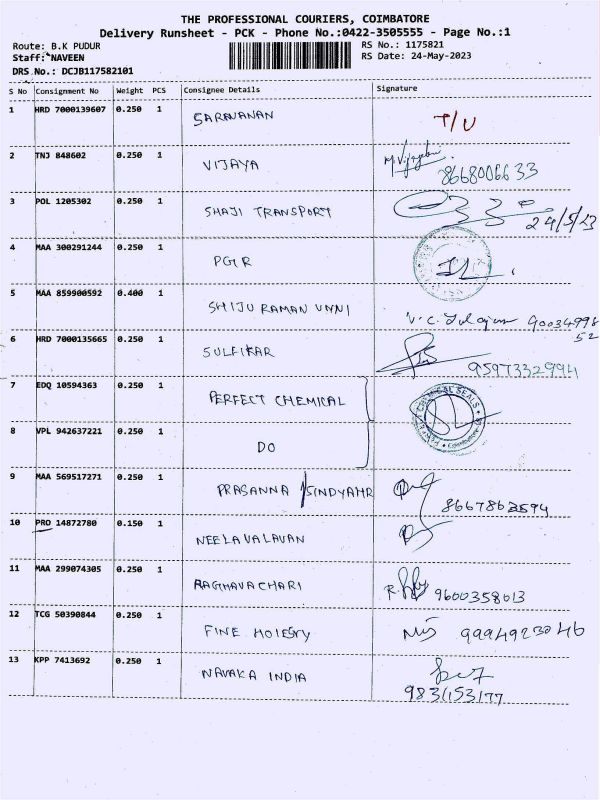 THE PROFESSIONAL COURIERS, COIMBATORE
Delivery Runsheet - PCK - Phone No.:0422-3505555 - Page No.:1
Route: B.K PUDUR RS No.: 1175821
Staff: NAVEEN RS Date: 24-May-2023
DRS.No.: DCJB117582101
S No Consignment No Weight PCS Consignee Details Signature
1 HRD 7000139607 0.250 1 SARAVANAN T/U
2 TNJ 848602 0.250 1 VIJAYA
8668006633
3 POL 1205302 0.250 1 SHAJI TRANSPORT 24/5/23
4 MAA 300291244 0.250 1 PGR
5 MAA 859900592 0.400 1 SHIJU RAMAN UNNI V.C. 90034998
52
6 HRD 7000135665 0.250 1 SULFIKAR 9597332994
7 EDQ 10594363 0.250 1 PERFECT CHEMICAL CHEMICAL SEALS
8 VPL 942637221 0.250 1 DO
9 MAA 569517271 0.250 1 PRASANNA
10 PRO 14872780 0.150 1 NEELAVALAVAN
11 MAA 299074305 0.250 1 RAGHAVACHARI 9600358013
12 TCG 50390844 0.250 1 FINE 9994923046
13 KPP 7413692 0.250 1 NAVAKA INDIA
9831153177